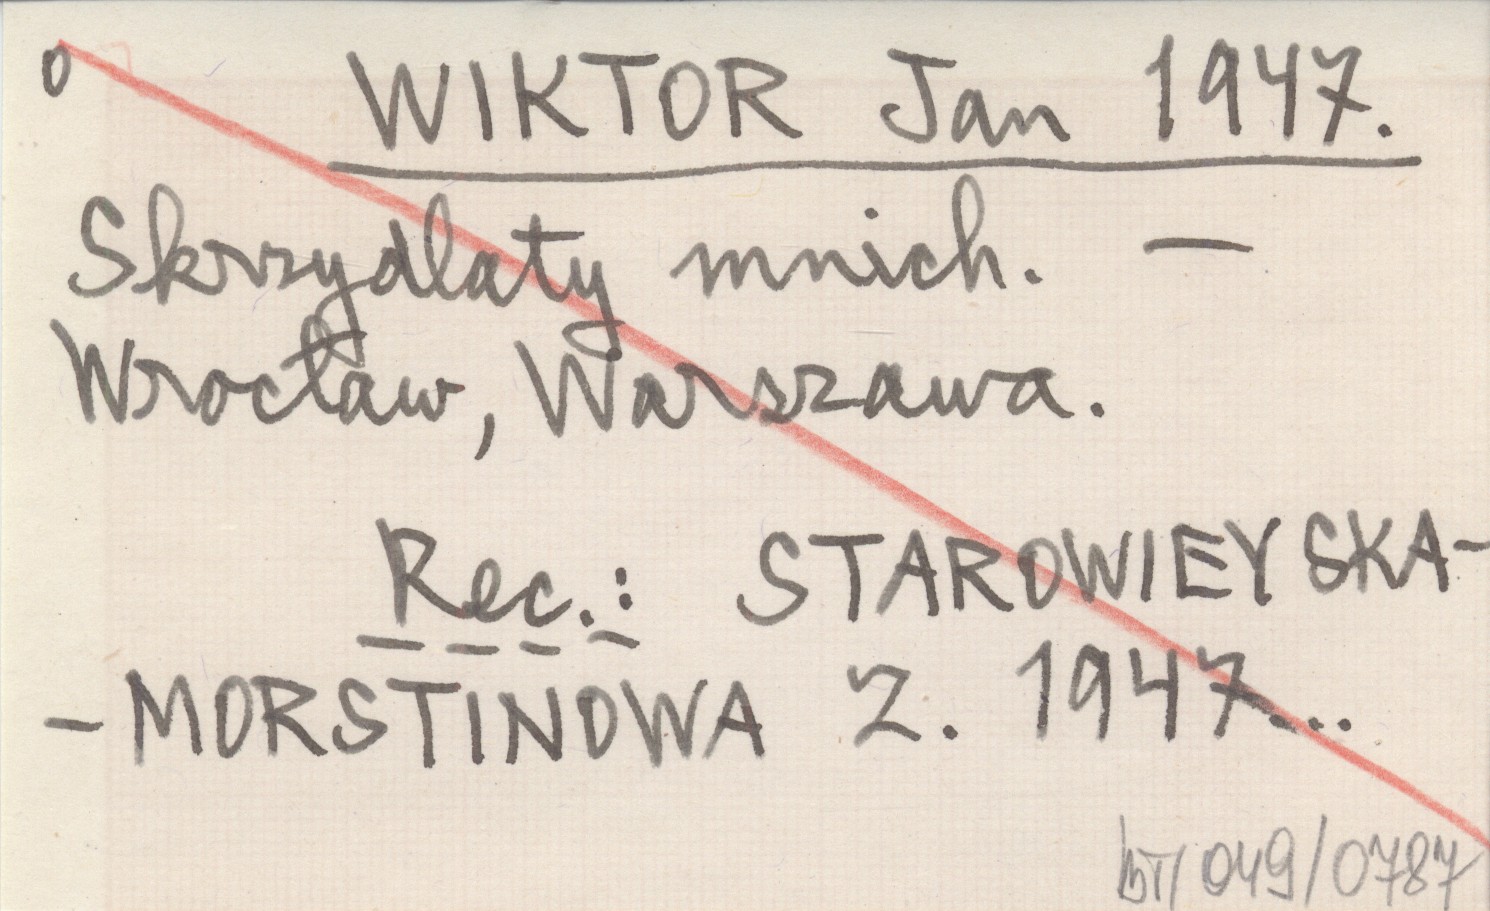 0 WIKTOR Jan 1947.
Skrzydlaty mnich. —
Wrocław, Warszawa.
Rec.: STAROWIEYSKA-
-MORSTINOWA Z. 1947...
bT/049/0787